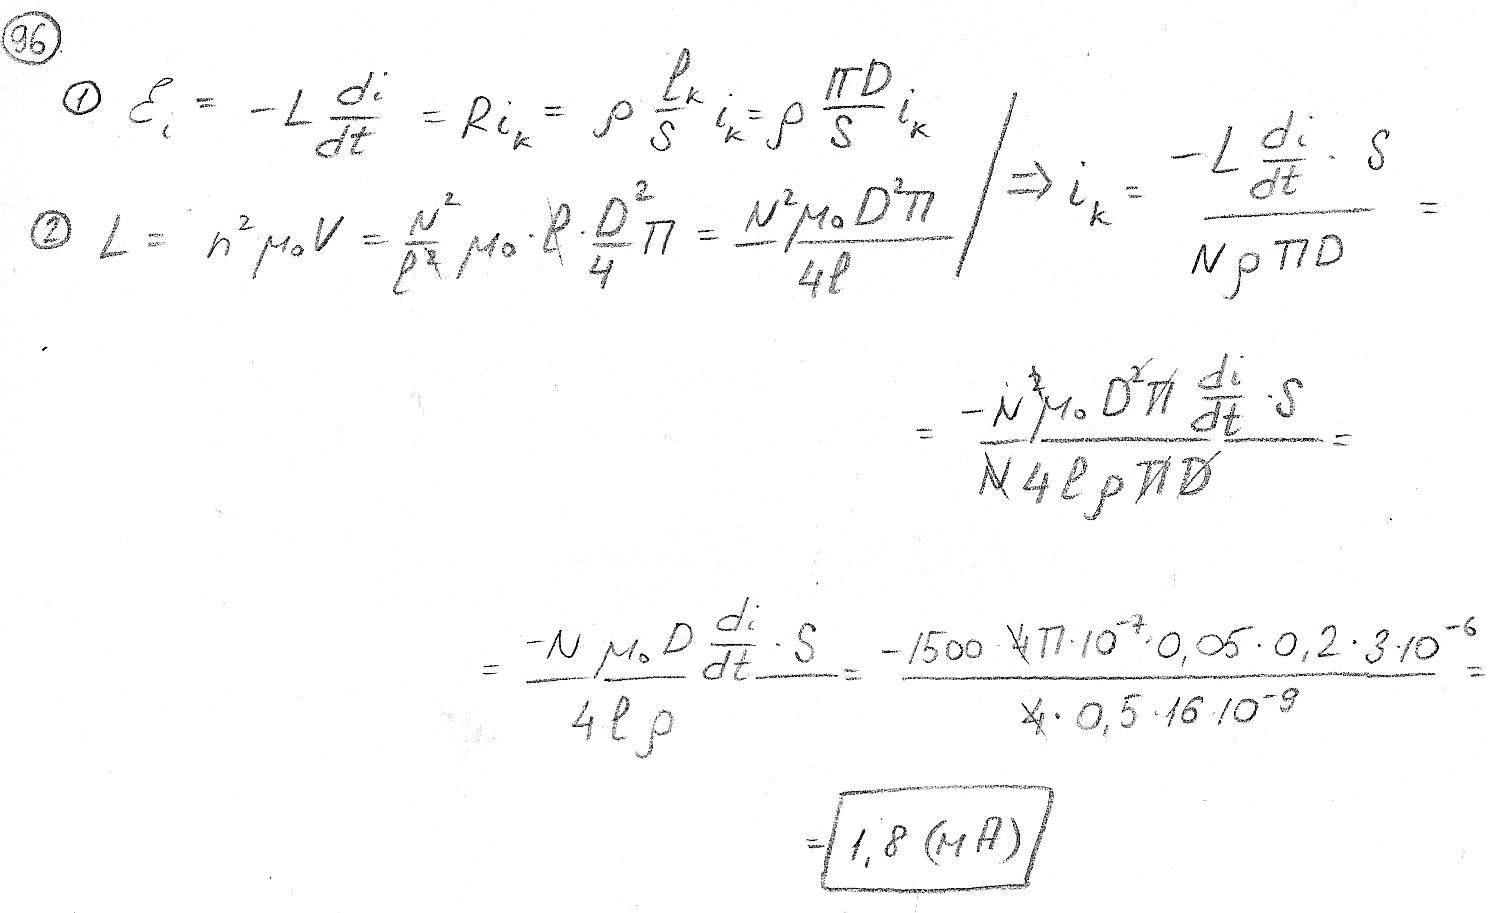 96
① ℰᵢ = -L di/dt = R iₖ = ρ ℓₖ/S iₖ = ρ πD/S iₖ
② L = n²μ₀V = N²/ℓ² μ₀ · ℓ · D²/4 π = N²μ₀D²π/4ℓ ⇒ iₖ = -L di/dt · S / NρπD =
= -N²μ₀D²π di/dt · S / N4ℓρπD =
= -Nμ₀D di/dt · S / 4ℓρ = -1500 · 4π · 10⁻⁷ · 0,05 · 0,2 · 3 · 10⁻⁶ / 4 · 0,5 · 16 · 10⁻⁹ =
= 1,8 (мА)